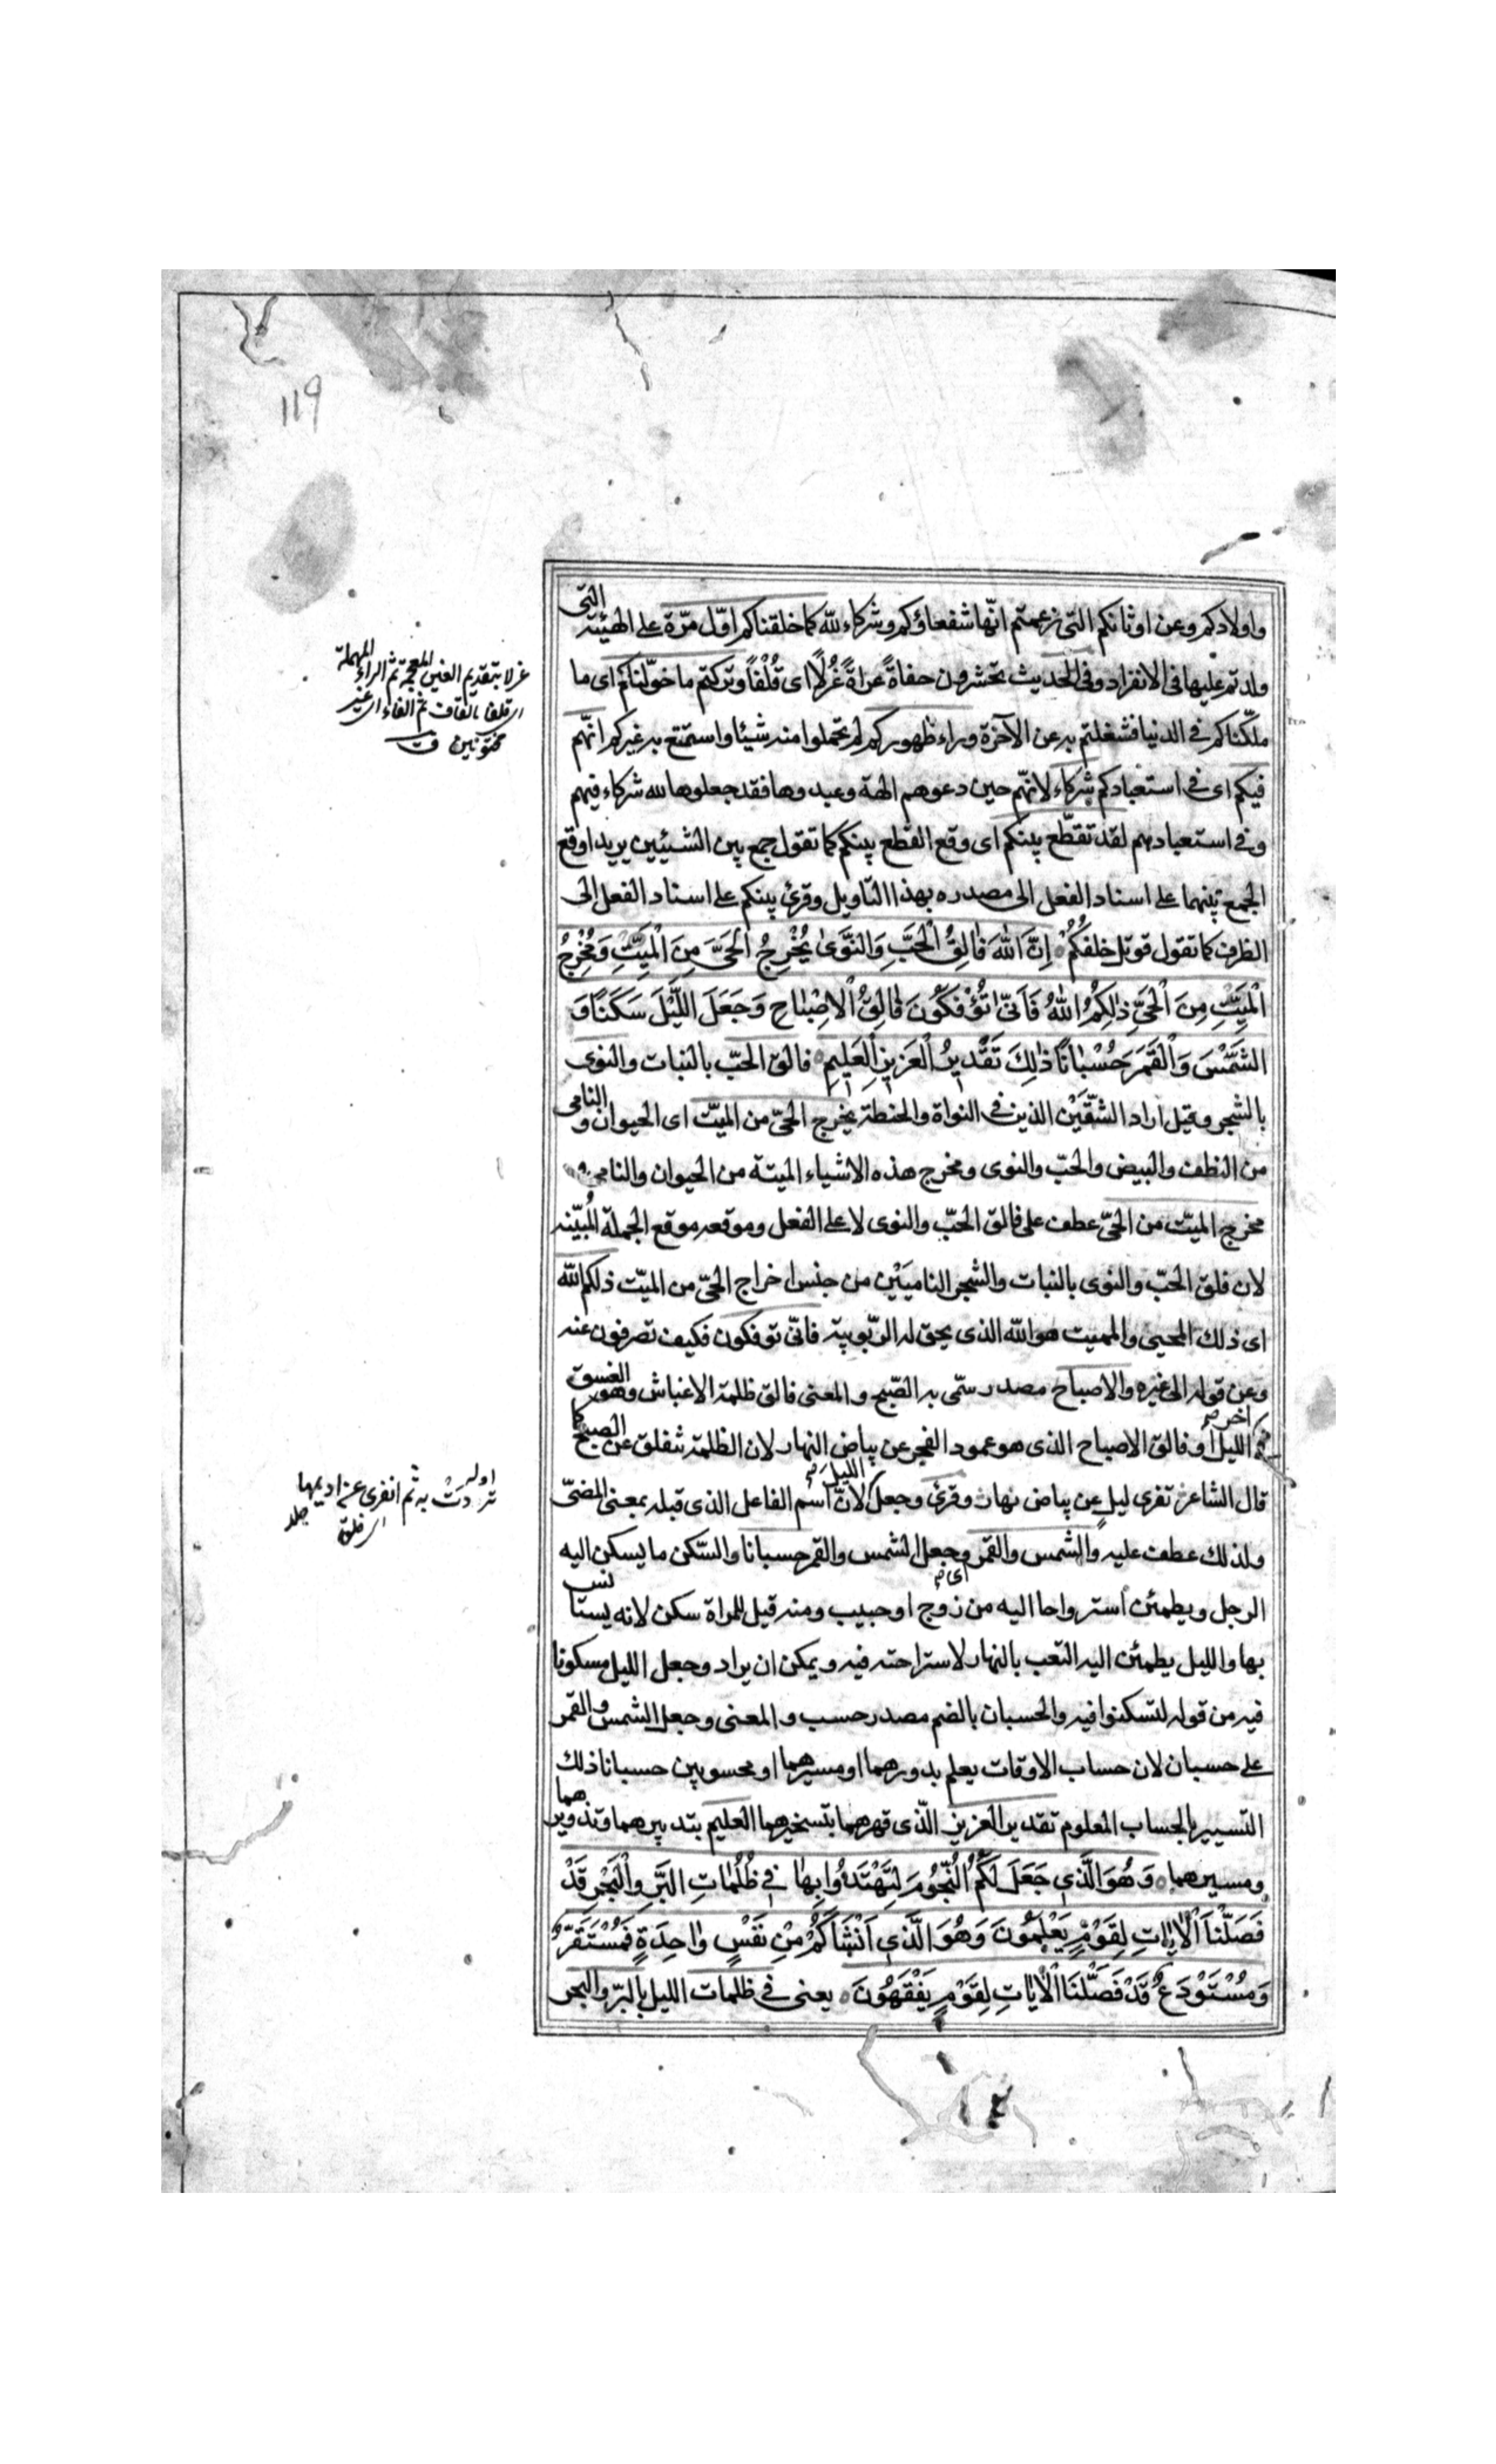 119
واولادكم وعن اوثانكم التى زعمتم انّها شفعاؤكم وشركاء لله كما خلقناكم اوّل مرّة على الهيئة التى
ولدتم عليها فى الانفراد وفى الحديث تحشرون حفاةً عراةً غُرلًا اى قُلْفًا وتركتم ما خوّلناكم اى ما
ملّكناكم فى الدنيا فشغلتم به عن الآخرة وراء ظهوركم لم تحملوا منه شيئا واستمتع به غيركم انّهم
فيكم اى فى استعبادكم شركاء لانّهم حين دعوهم الهة وعبدوها فقد جعلوها لله شركاء فيهم
وفى استعبادهم لقد تقطّع بينكم اى وقع القطع بينكم كما تقول جمع بين الشيئين يريد اوقع
الجمع بينهما على اسناد الفعل الى مصدره بهذا التاويل وقرئ بينكم على اسناد الفعل الى
الظرف كما تقول قوتل خلفكم اِنَّ اللّٰهَ فٰالِقُ الْحَبِّ وَالنَّوىٰ يُخْرِجُ الْحَىَّ مِنَ الْمَيِّتِ وَمُخْرِجُ
الْمَيِّتِ مِنَ الْحَىِّ ذٰلِكُمُ اللّٰهُ فَاَنّىٰ تُؤْفَكُونَ فٰالِقُ الْاِصْبٰاحِ وَجَعَلَ اللَّيْلَ سَكَنًا وَ
الشَّمْسَ وَالْقَمَرَ حُسْبٰانًا ذٰلِكَ تَقْدِيرُ الْعَزِيزِ الْعَلِيمِ فالق الحبّ بالنبات والنوى
بالشجر وقيل اراد الشقّين الذين فى النواة والحنطة يخرج الحىّ من الميّت اى الحيوان والنامى
من النطف والبيض والحبّ والنوى ومخرج هذه الاشياء الميتة من الحيوان والنامى
مخرج الميّت من الحىّ عطف على فالق الحبّ والنوى لا على الفعل وموقعه موقع الجملة المُبيّنه
لان فلق الحبّ والنوى بالنبات والشجر الناميين من جنس اخراج الحىّ من الميّت ذلكم اللّه
اى ذلك المحيى والمميت هو اللّه الذى يحق له الربوبية فانّى توفكون فكيف تصرفون عنه
وعن قوله الى غيره والاصباح مصدر سمّى به الصّبح والمعنى فالق ظلمة الاغباش وهو الغسق
اخر الليل او فالق الاصباح الذى هو عمود الفجر عن بياض النهار لان الظلمة تنفلق عن الصبح كما
قال الشاعر تفرى ليلٍ عن بياض نهار وقرئ وجعل الليل لانّ اسم الفاعل الذى قبله بمعنى المضىّ
ولذلك عطف عليه والشمس والقمر اى وجعل الشمس والقمر حسبانا والسّكن ما يسكن اليه
الرجل ويطمئن استرواحا اليه من زوج او حبيب ومنه قيل للمراة سكن لانه يستانس
بها والليل يطمئن اليه التعب بالنهار لاستراحته فيه ويمكن ان يراد وجعل الليل مسكونا
فيه من قوله لتسكنوا فيه والحسبان بالضم مصدر حسب والمعنى وجعل الشمس والقمر
على حسبان لان حساب الاوقات يعلم بدورهما ومسيرهما او محسوبين حسبانا ذلك
التسيير بالحساب المعلوم تقدير العزيز الّذى قهرهما بتسخيرهما العليم بتدبيرهما وتدويرهما
ومسيرهما وَهُوَ الَّذِى جَعَلَ لَكُمُ النُّجُومَ لِتَهْتَدُوا بِهٰا فِى ظُلُمٰاتِ الْبَرِّ وَالْبَحْرِ قَدْ
فَصَّلْنَا الْاٰيٰاتِ لِقَوْمٍ يَعْلَمُونَ وَهُوَ الَّذِى اَنْشَاَكُمْ مِنْ نَفْسٍ وٰاحِدَةٍ فَمُسْتَقَرٌّ
وَمُسْتَوْدَعٌ قَدْ فَصَّلْنَا الْاٰيٰاتِ لِقَوْمٍ يَفْقَهُونَ يعنى فى ظلمات الليل بالبرّ والبحر
غرلا بتقديم الغين المعجمة ثم الراء المهملة
اى قلفا بالقاف ثم الفاء اى غير
مختونين
اوله
تردت به ثم انفرى عن اديمها
جلد
اى فلق